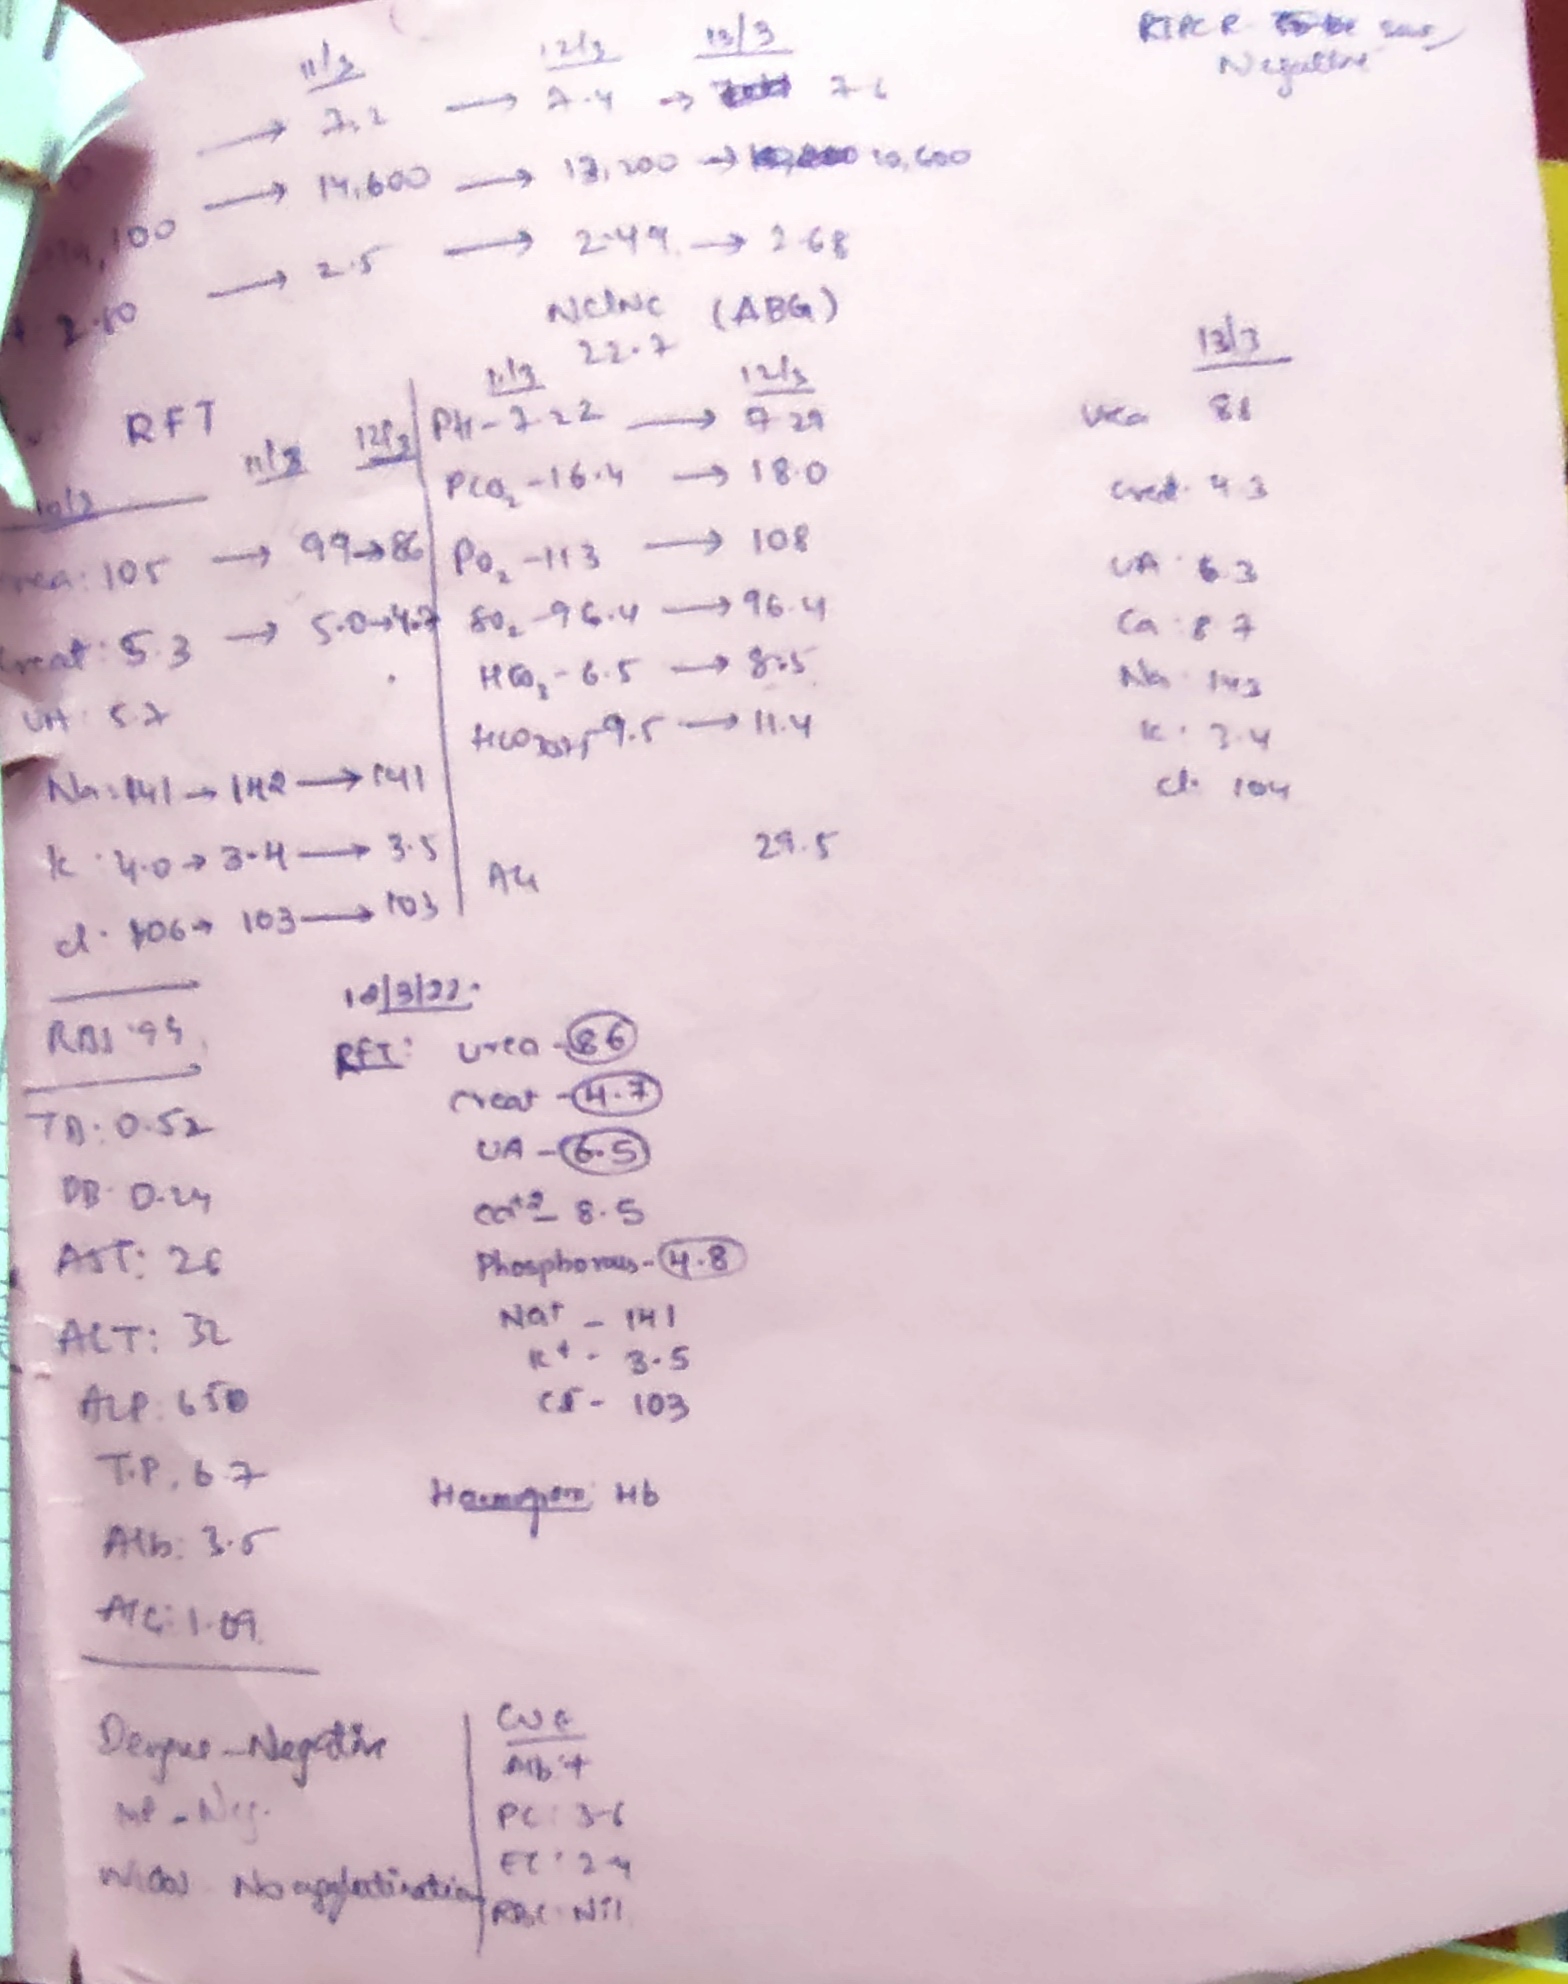 11/3 12/3 13/3
RTPCR
Negative
→ 7.2 → 7.4 → 7.6
→ 14,600 → 13,200 → 10,600
,100
2.80 → 2.5 → 2.49 → 2.68
NCNC (ABG)
22.7
RFT
10/3 11/3 12/3
urea: 105 → 99 → 86
Creat: 5.3 → 5.0 → 4.7
UA: 5.7
Na: 141 → 142 → 141
K: 4.0 → 3.4 → 3.5
cl: 106 → 103 → 103
11/3 12/3
PH - 7.22 → 7.29
PCO2 - 16.4 → 18.0
PO2 - 113 → 108
SO2 - 96.4 → 96.4
HCO3 - 6.5 → 8.5
HCO3 st - 9.5 → 11.4
AG 29.5
13/3
Urea 81
Creat. 4.3
UA 6.3
Ca 8.7
Na 143
K. 3.4
cl. 104
RBS 94
TB: 0.52
DB: 0.24
AST: 26
ALT: 32
ALP: 650
T.P. 6.7
Alb: 3.5
A/G: 1.09
/3/22.
RFT: Urea - 86
creat - 4.7
UA - 6.5
ca+2 - 8.5
Phosphorous - 4.8
Na+ - 141
K+ - 3.5
Cl - 103
Hemogram: Hb
Dengue - Negative
MP - Neg.
Widal - No agglutination
CUE
Alb: +
PC: 3-6
EC: 2-4
RBC: Nil